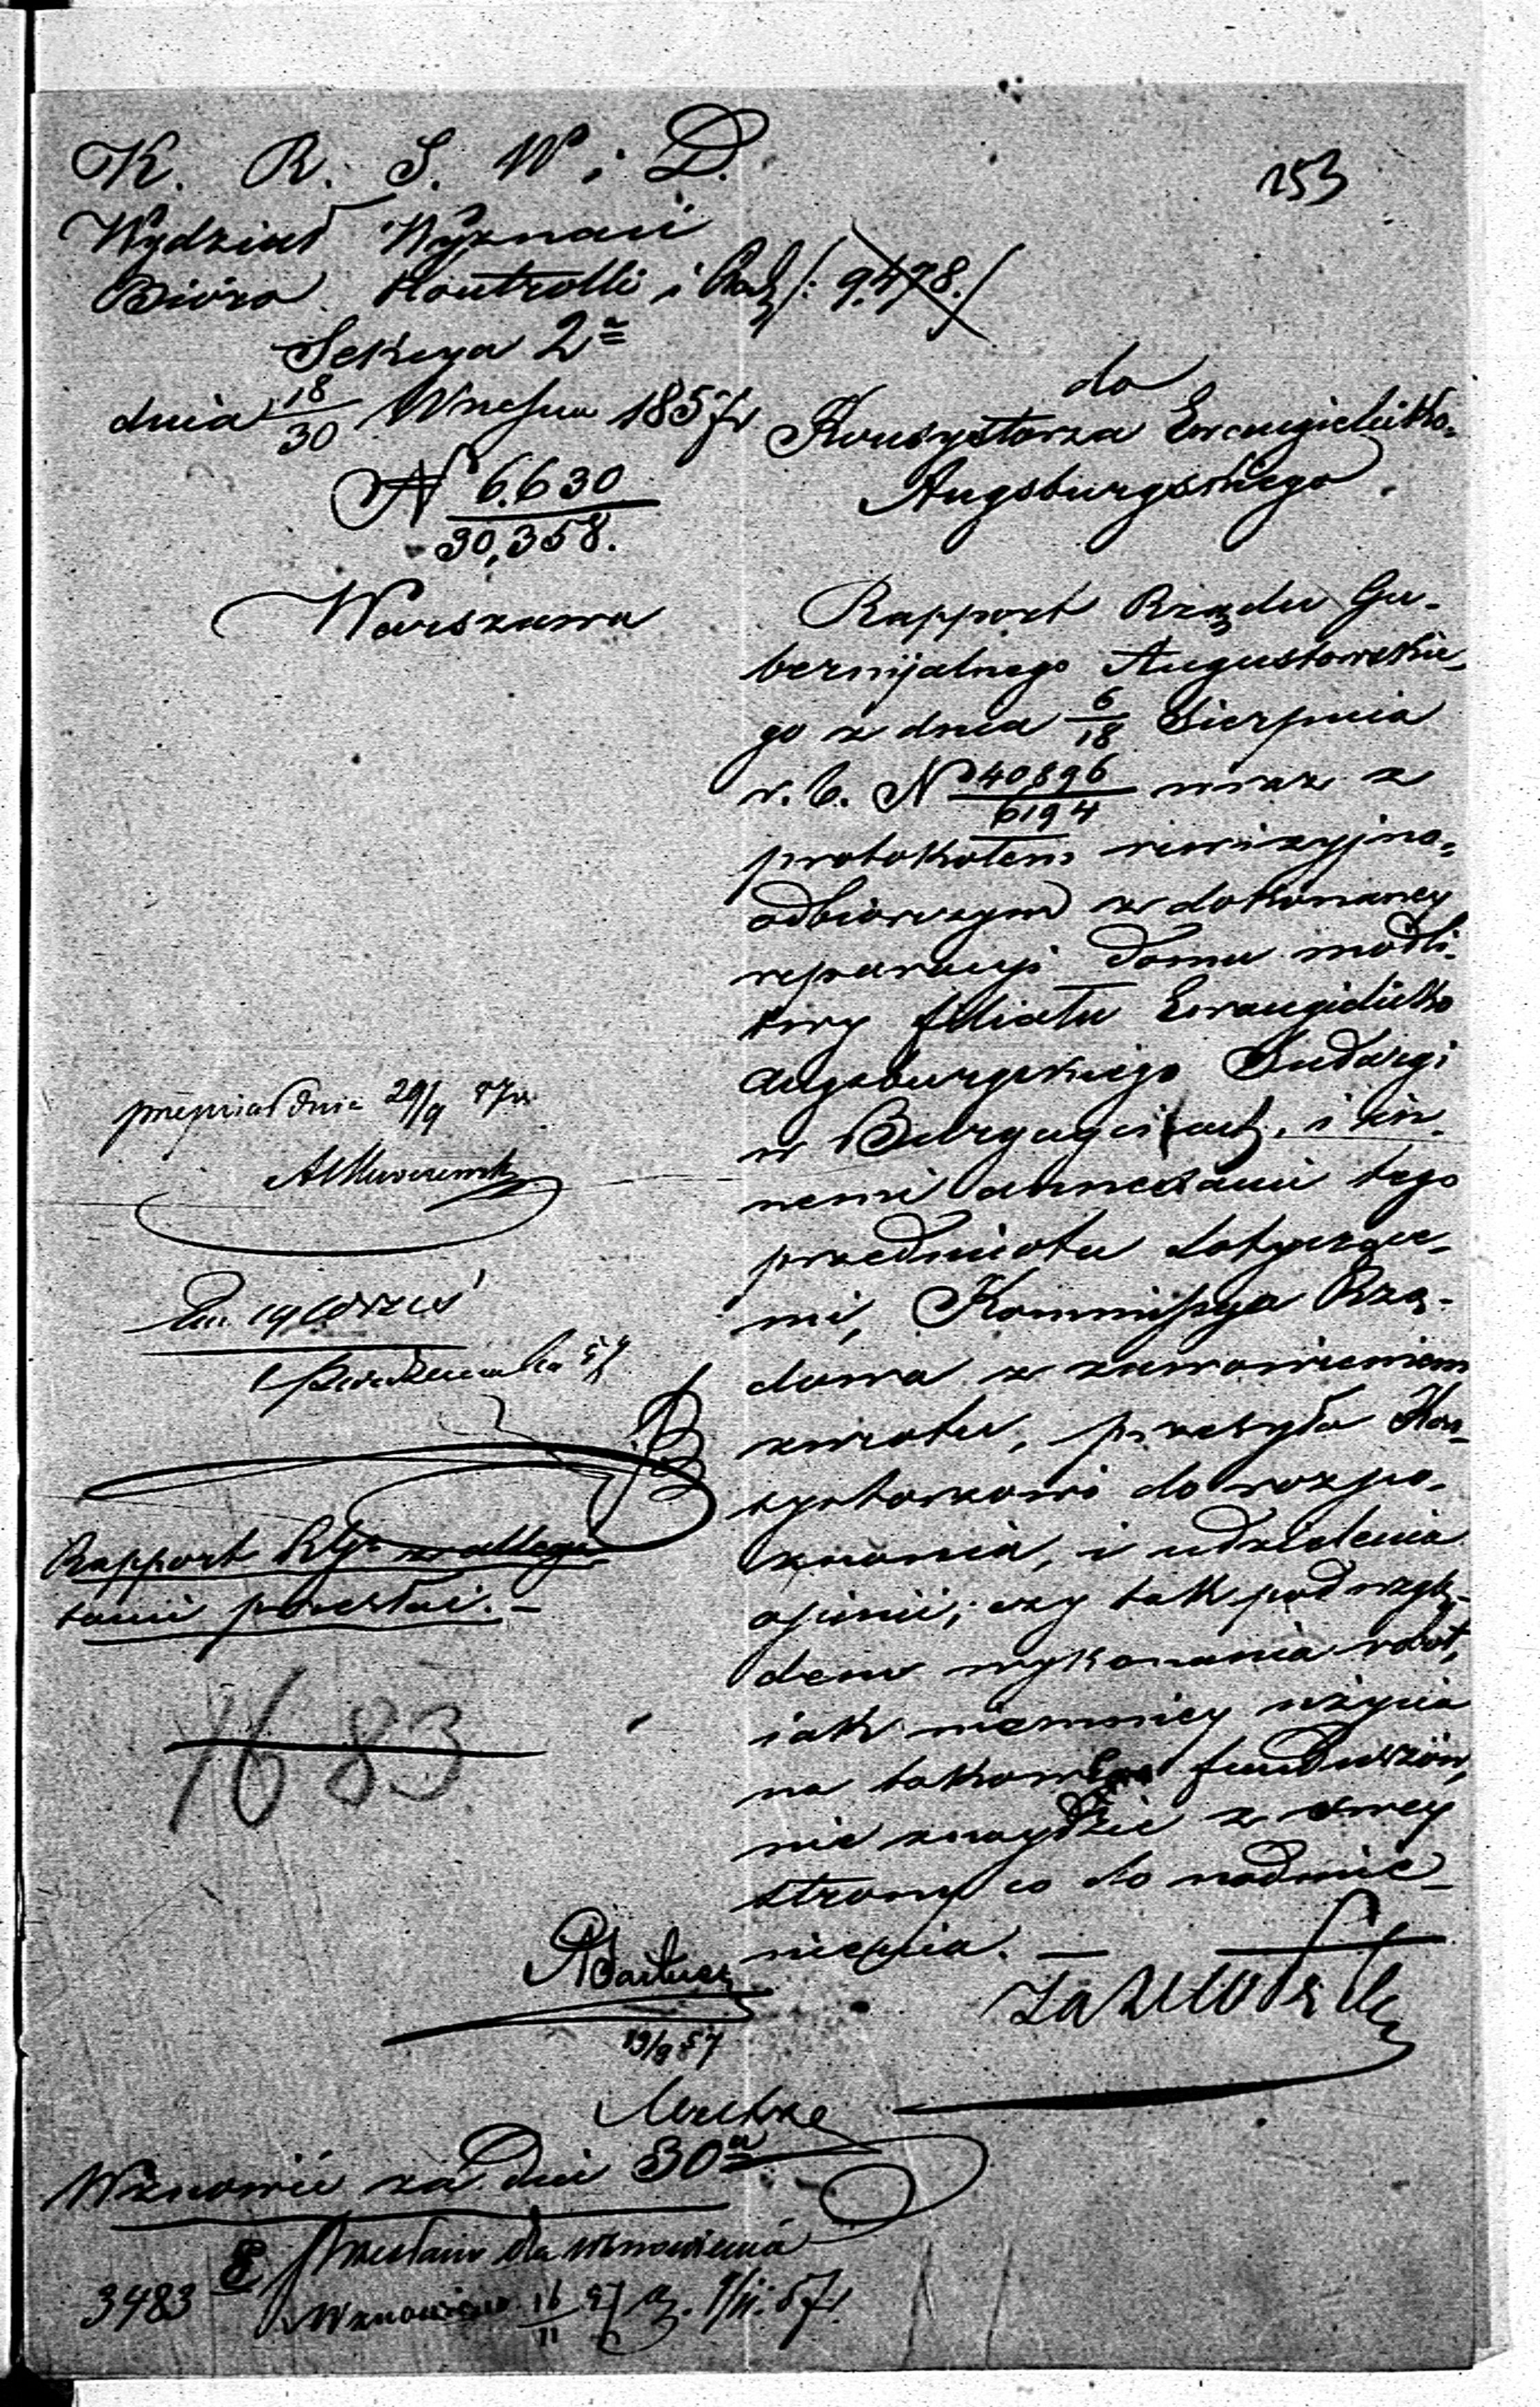 K. R. S. W. i D.
153
Wydział Wyznań
Bióro Kontrolli i Rach /: 9.478./
Sekcya 2ª
dnia 18/30 Września 1857 r
№ 6.630/30,358.
Warszawa
do
Konsystorza Ewangielicko-
Augsburgskiego.
Rapport Rządu Gu-
bernijalnego Augustowskie-
go z dnia 6/18 Sierpnia
r. b. № 40,896/6194 wraz z
protokołem rewizyjno-
odbiorczym z dokonaney
reparacyi domu modli-
twy filiału Ewangielicko
augsburgskiego Sudargi
w i in-
nemi annexami tego
przedmiotu dotyczące-
mi, Kommissya Rzą-
dowa z zamówieniem
zwrotu, przesyła Kon-
systorzowi do rozpo-
znania, i udzielenia
opinii; czy tak pod wzglę-
dem wykonania robót,
iak niemniey użycia
na takowe funduszów,
nie znaydzie z swey
strony co do nadmie-
nienia. —
przepisał dnia 29/9 57 r
19 Wrześ
Rapport w allega-
tami przesłać. —
1683
19/9 57
Wznowić za dni 30ª
3483
dla wznowienia
Wznowiono 16/11 57 9/11. 57.